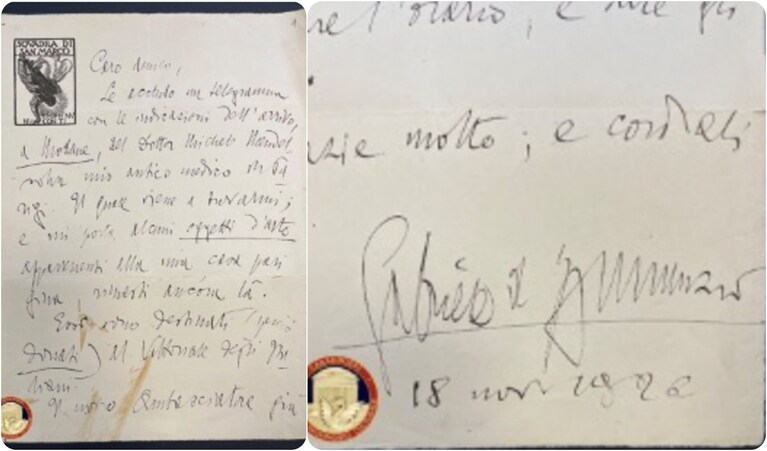 SQVADRA DI
SAN MARCO
Caro amico,
Le accludo un telegramma
con le indicazioni dell'arrivo,
a Modane, del Dottor Michele
mio antico medico di Pa-
rigi. Il quale viene a trovarmi;
e mi porta alcuni oggetti d'arte
appartenenti alla mia casa pari
gina, rimasti ancóra là.
Essi sono destinati
donati) al Vittoriale degli Ita-
liani.
Il nostro Ambasciatore già
e
molto; e cordiali
Gabriele d'Annunzio
18 nov. 1926